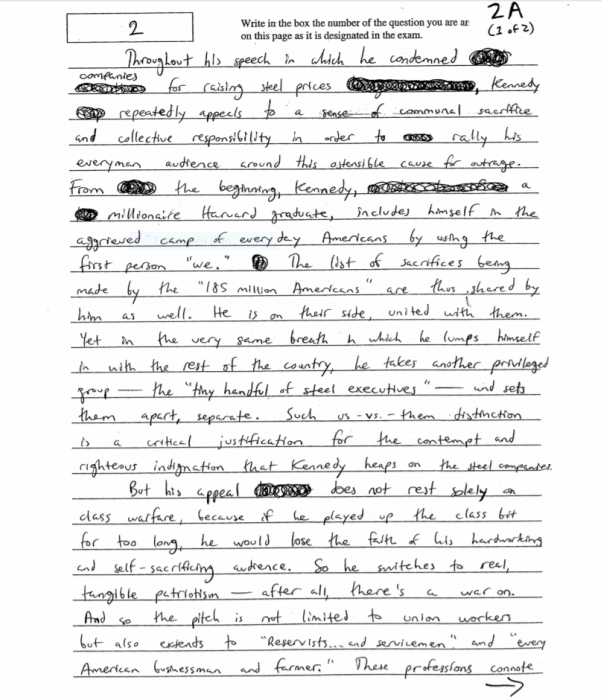 2
Write in the box the number of the question you are ar
on this page as it is designated in the exam.
2A
(1 of 2)
Throughout his speech in which he condemned
companies
for raising steel prices , Kennedy
repeatedly appeals to a sense of communal sacrifice
and collective responsibility in order to rally his
everyman audience around this ostensible cause for outrage.
From the beginning, Kennedy, a
millionaire Harvard graduate, includes himself in the
aggrieved camp of everyday Americans by using the
first person "we." The list of sacrifices being
made by the "185 million Americans" are thus shared by
him as well. He is on their side, united with them.
Yet in the very same breath in which he lumps himself
in with the rest of the country, he takes another privileged
group — the "tiny handful of steel executives" — and sets
them apart, separate. Such us-vs.-them distinction
is a critical justification for the contempt and
righteous indignation that Kennedy heaps on the steel companies.
But his appeal does not rest solely on
class warfare, because if he played up the class bit
for too long, he would lose the faith of his hardworking
and self-sacrificing audience. So he switches to real,
tangible patriotism — after all, there's a war on.
And so the pitch is not limited to union workers
but also extends to "Reservists... and servicemen" and "every
American businessman and farmer." These professions connote
→